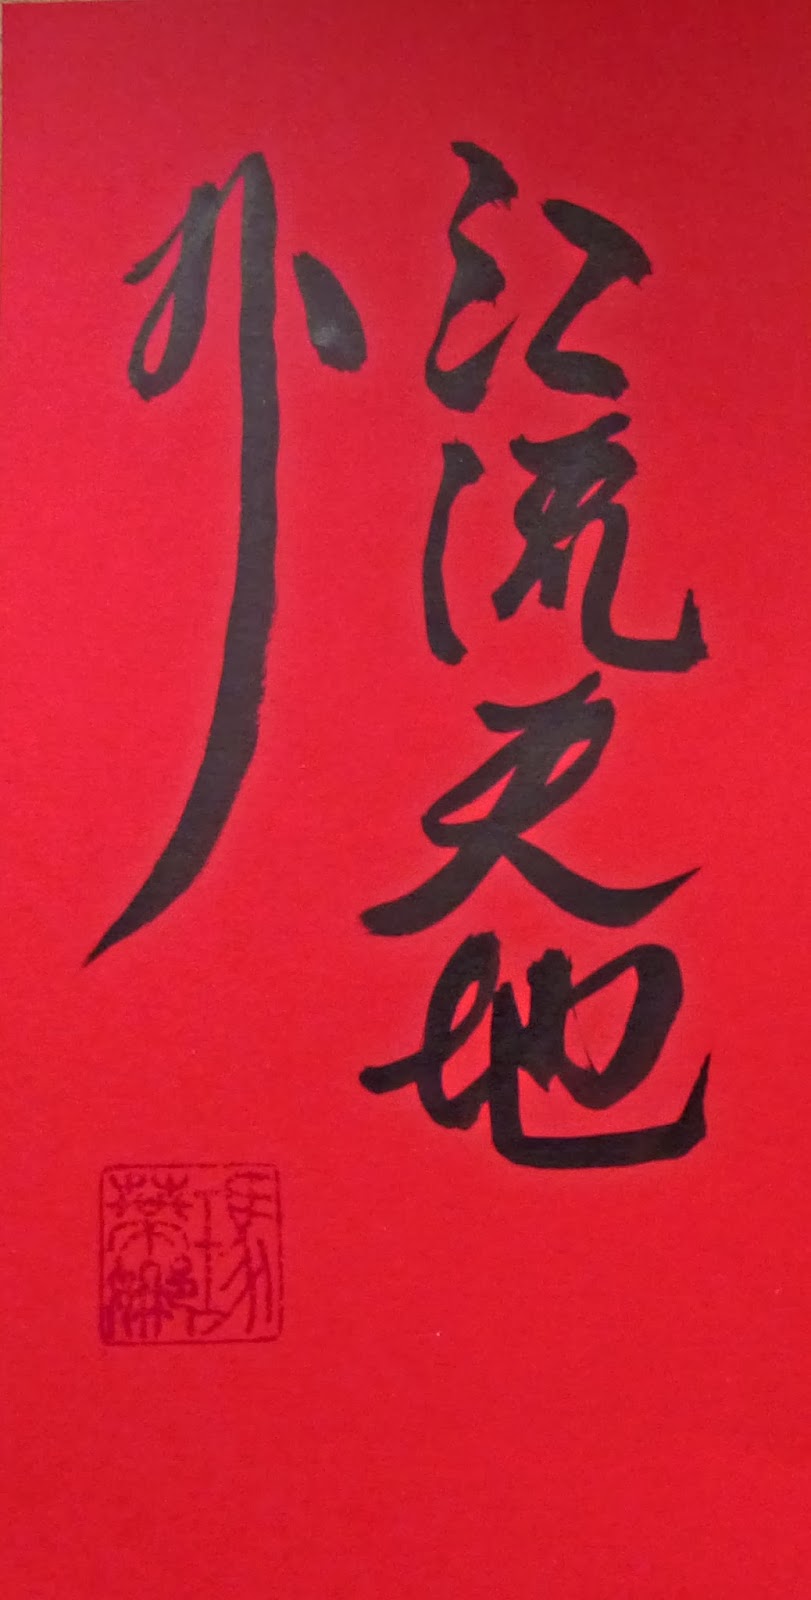 江流天地
外